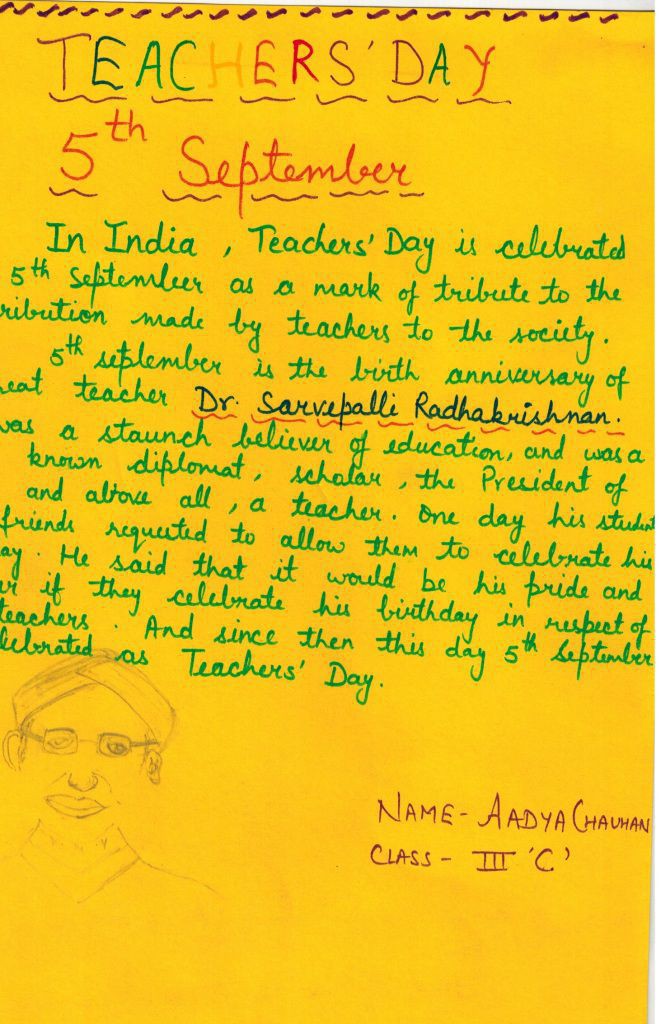 TEACHERS' DAY
5th September
In India, Teachers' Day is celebrated
5th September as a mark of tribute to the
ribution made by teachers to the society.
5th september is the birth anniversary of
eat teacher Dr. Sarvepalli Radhakrishnan.
was a staunch believer of education, and was a
known diplomat, scholar, the President of
and above all, a teacher. One day his student
friends requested to allow them to celebrate his
ay. He said that it would be his pride and
er if they celebrate his birthday in respect of
teachers. And since then this day 5th September
lebrated as Teachers' Day.
NAME- AADYA CHAUHAN
CLASS- III 'C'